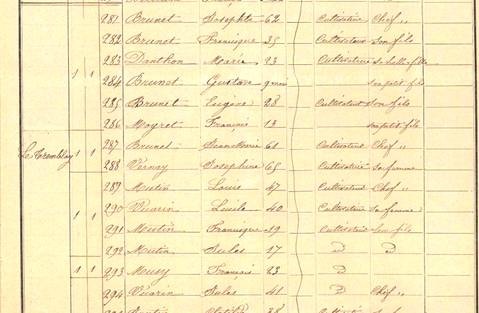 281 Brunet Josephte 62 Cultivatrice Chef "
282 Brunet Francisque 35 Cultivateur Son fils
283 Danthon Marie 23 Cultivatrice Sa belle fille
1 1 284 Brunet Gustave 9 mois Son petit fils
285 Brunet Eugène 28 Cultivateur Son fils
286 Moyret François 13 Son petit fils
287 Brunet 61 Cultivateur Chef "
Le Tremblay 1 1 288 Vernay Josephine 65 Cultivatrice Sa femme
289 Mutin Louis 47 Cultivateur Chef "
290 Vicarin Lucile 40 Cultivatrice Sa femme
1 1 291 Mutin Francisque 19 Cultivateur Son fils
292 Mutin Jules 17 d d
1 1 293 François 23 d
294 Vicarin Jules 41 d Chef "